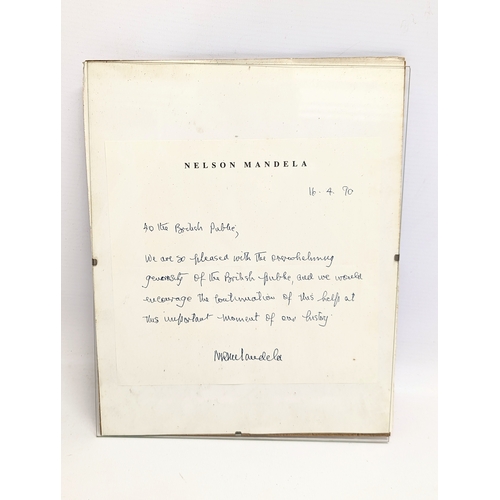 NELSON MANDELA
16. 4. 90
To the British Public,
We are so pleased with the overwhelming
generosity of the British public, and we would
encourage the continuation of this help at
this important moment of our history.
NRMandela